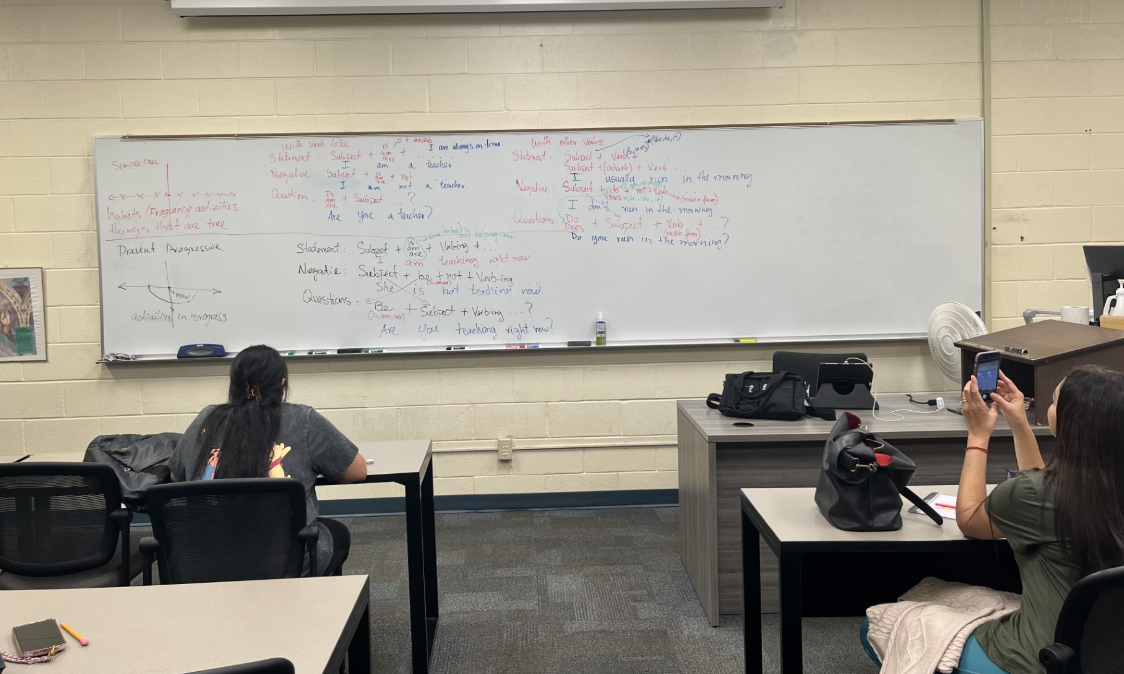 Simple
habits/Frequency activities
things that are true
with verb to be
I am always on time.
Statement Subject + is am are + .....
I am a teacher
Negative: Subject + is am are + not
I am not a teacher
Question: Is Am Are + Subject .....?
Are you a teacher?
with other verbs
Statement: Subject + Verb + ....
Subject + (adverb) + Verb ...
I usually run in the morning
Negative: Subject + do + not + Verb
(main form)
I don't run in the morning
Questions Do Does + Subject + Verb + ...?
(main form)
Do you run in the morning?
Present Progressive
now
activity in progress
Statement: Subject + am are + Verbing + ...
I am teaching right now
Negative: Subject + be + not + Verb-ing ....
She is not teaching now
Questions: Be + Subject + Verbing ...?
Are you teaching right now?